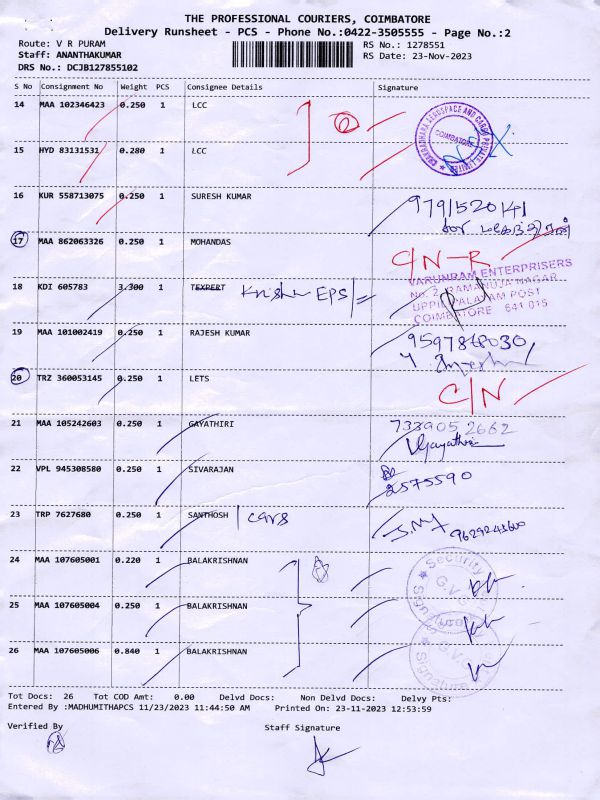 THE PROFESSIONAL COURIERS, COIMBATORE
Delivery Runsheet - PCS - Phone No.:0422-3505555 - Page No.:2
Route: V R PURAM RS No.: 1278551
Staff: ANANTHAKUMAR RS Date: 23-Nov-2023
DRS No.: DCJB127855102
S No Consignment No Weight PCS Consignee Details Signature
14 MAA 102346423 0.250 1 LCC
CHAKRADHARA AEROSPACE AND CARGO PRIVATE LIMITED
COIMBATORE
15 HYD 83131531 0.280 1 LCC
16 KUR 558713075 0.250 1 SURESH KUMAR 9791520141
17 MAA 862063326 0.250 1 MOHANDAS C/N-R
18 KDI 605783 3.300 1 TEXPERT Krishna EPS
VARUNRAM ENTERPRISERS
No. 3, RAMANUJA NAGAR
UPPILIPALAYAM POST
COIMBATORE 641 015
19 MAA 101002419 0.250 1 RAJESH KUMAR
20 TRZ 360053145 0.250 1 LETS C/N
21 MAA 105242603 0.250 1 GAYATHIRI 7339052662
Vgayathri
22 VPL 945308580 0.250 1 SIVARAJAN 2575590
23 TRP 7627680 0.250 1 SANTHOSH | cars
24 MAA 107605001 0.220 1 BALAKRISHNAN
Security
G.V.
Signature
25 MAA 107605004 0.250 1 BALAKRISHNAN
26 MAA 107605006 0.840 1 BALAKRISHNAN
Signature
Tot Docs: 26 Tot COD Amt: 0.00 Delvd Docs: Non Delvd Docs: Delvy Pts:
Entered By :MADHUMITHAPCS 11/23/2023 11:44:50 AM Printed On: 23-11-2023 12:53:59
Verified By Staff Signature